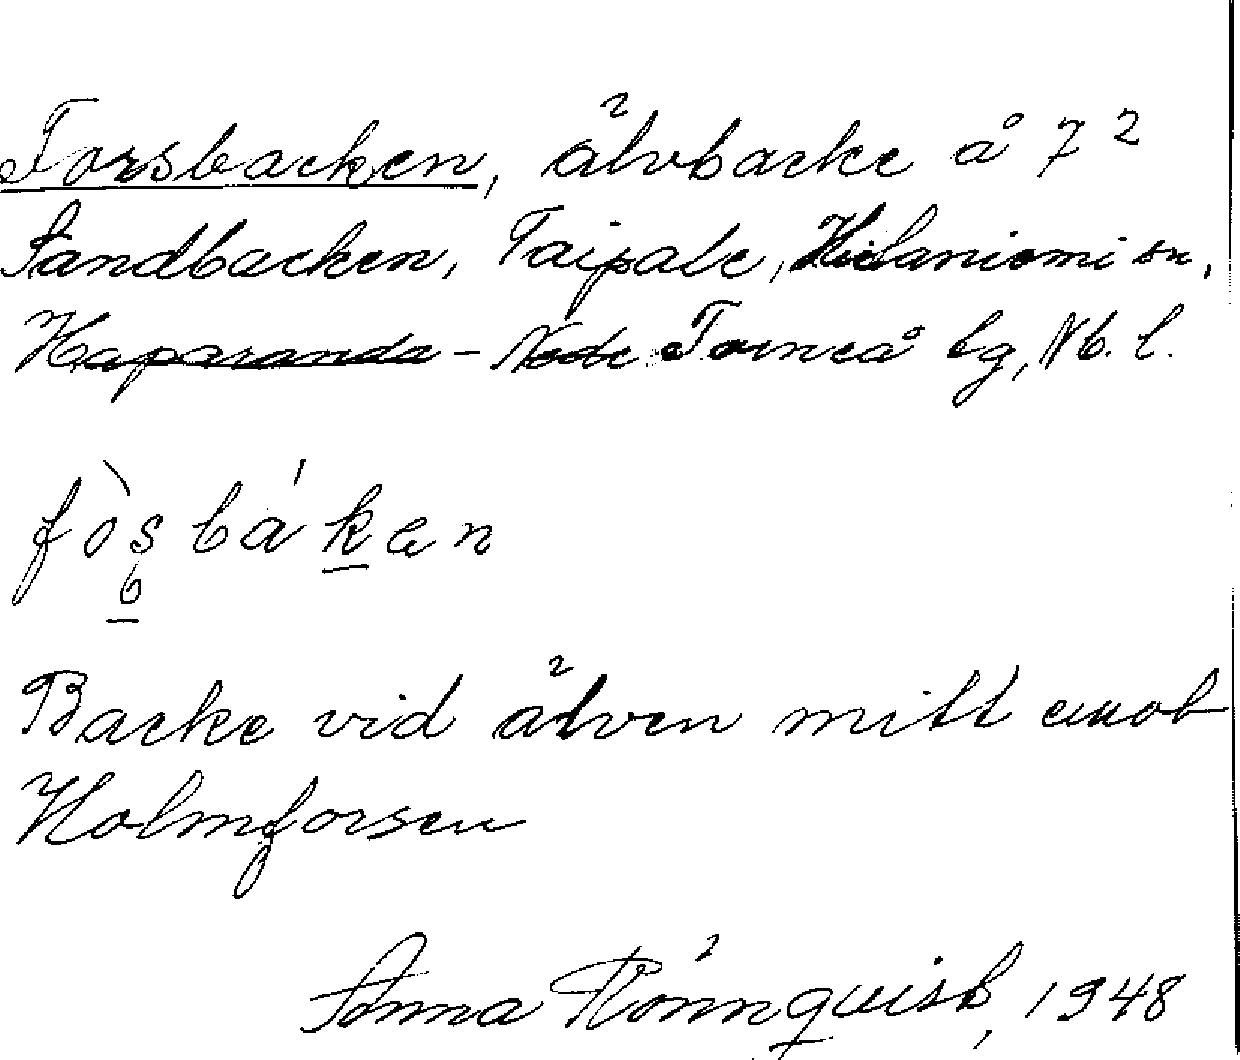 Forsbacken, älvbacke å 7²
Sandbacken, Taipale, Hietaniemi sn,
Haparanda - Nedre Torneå lg, Nb. l.
fòsbákan
Backe vid älven mitt emot
Holmforsen
Anna Rönnquist, 1948